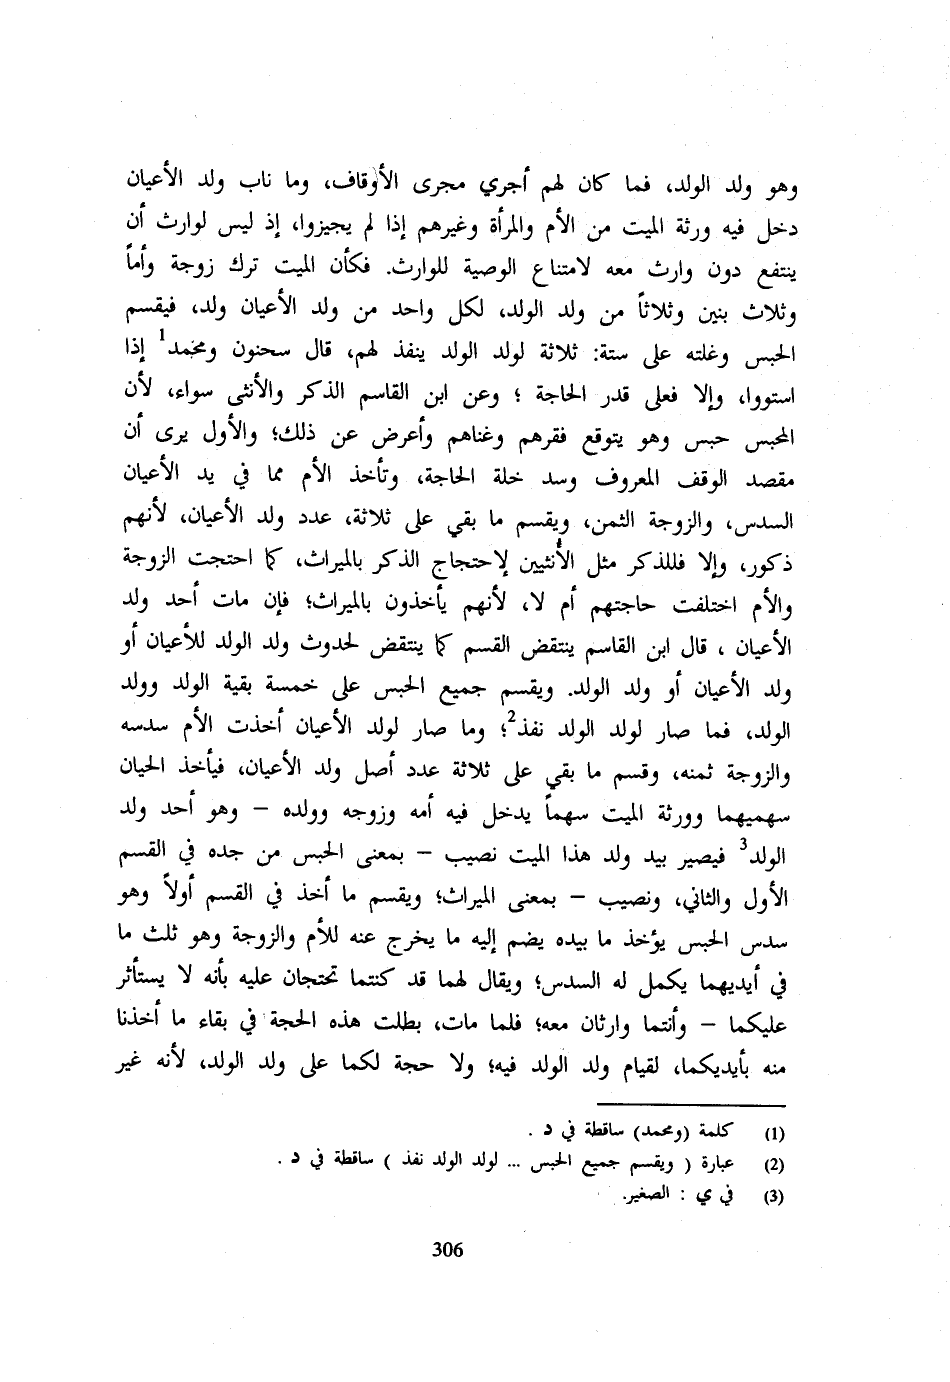 وهو ولد الولد، فما كان لهم أجري مجرى الأوقاف، وما ناب ولد الأعيان
دخل فيه ورثة الميت من الأم والمرأة وغيرهم إذا لم يجيزوا، إذ ليس لوارث أن
ينتفع دون وارث معه لامتناع الوصية للوارث. فكأن الميت ترك زوجة وأماً
وثلاث بنين وثلاثاً من ولد الولد، لكل واحد من ولد الأعيان ولد، فيقسم
الحبس وغلته على ستة: ثلاثة لولد الولد ينفذ لهم، قال سحنون ومحمد1 إذا
استووا، وإلا فعلى قدر الحاجة ؛ وعن ابن القاسم الذكر والأنثى سواء، لأن
المحبس حبس وهو يتوقع فقرهم وغناهم وأعرض عن ذلك؛ والأول يرى أن
مقصد الوقف المعروف وسد خلة الحاجة، وتأخذ الأم مما في يد الأعيان
السدس، والزوجة الثمن، ويقسم ما بقي على ثلاثة، عدد ولد الأعيان، لأنهم
ذكور، وإلا فللذكر مثل الأنثيين لإحتجاج الذكر بالميراث، كما احتجت الزوجة
والأم اختلفت حاجتهم أم لا، لأنهم يأخذون بالميراث؛ فإن مات أحد ولد
الأعيان ، قال ابن القاسم ينتقض القسم كما ينتقض لحدوث ولد الولد للأعيان أو
ولد الأعيان أو ولد الولد. ويقسم جميع الحبس على خمسة بقية الولد وولد
الولد، فما صار لولد الولد نفذ2؛ وما صار لولد الأعيان أخذت الأم سدسه
والزوجة ثمنه، وقسم ما بقي على ثلاثة عدد أصل ولد الأعيان، فيأخذ الحيان
سهميهما وورثة الميت سهماً يدخل فيه أمه وزوجه وولده – وهو أحد ولد
الولد3 فيصير بيد ولد هذا الميت نصيب – بمعنى الحبس من جده في القسم
الأول والثاني، ونصيب – بمعنى الميراث؛ ويقسم ما أخذ في القسم أولاً وهو
سدس الحبس يؤخذ ما بيده يضم إليه ما يخرج عنه للأم والزوجة وهو ثلث ما
في أيديهما يكمل له السدس؛ ويقال لهما قد كنتما تحتجان عليه بأنه لا يستأثر
عليكما – وأنتما وارثان معه؛ فلما مات، بطلت هذه الحجة في بقاء ما أخذنا
منه بأيديكما، لقيام ولد الولد فيه؛ ولا حجة لكما على ولد الولد، لأنه غير
(1) كلمة (ومحمد) ساقطة في د .
(2) عبارة ( ويقسم جميع الحبس ... لولد الولد نفذ ) ساقطة في د .
(3) في ي : الصغير.
306